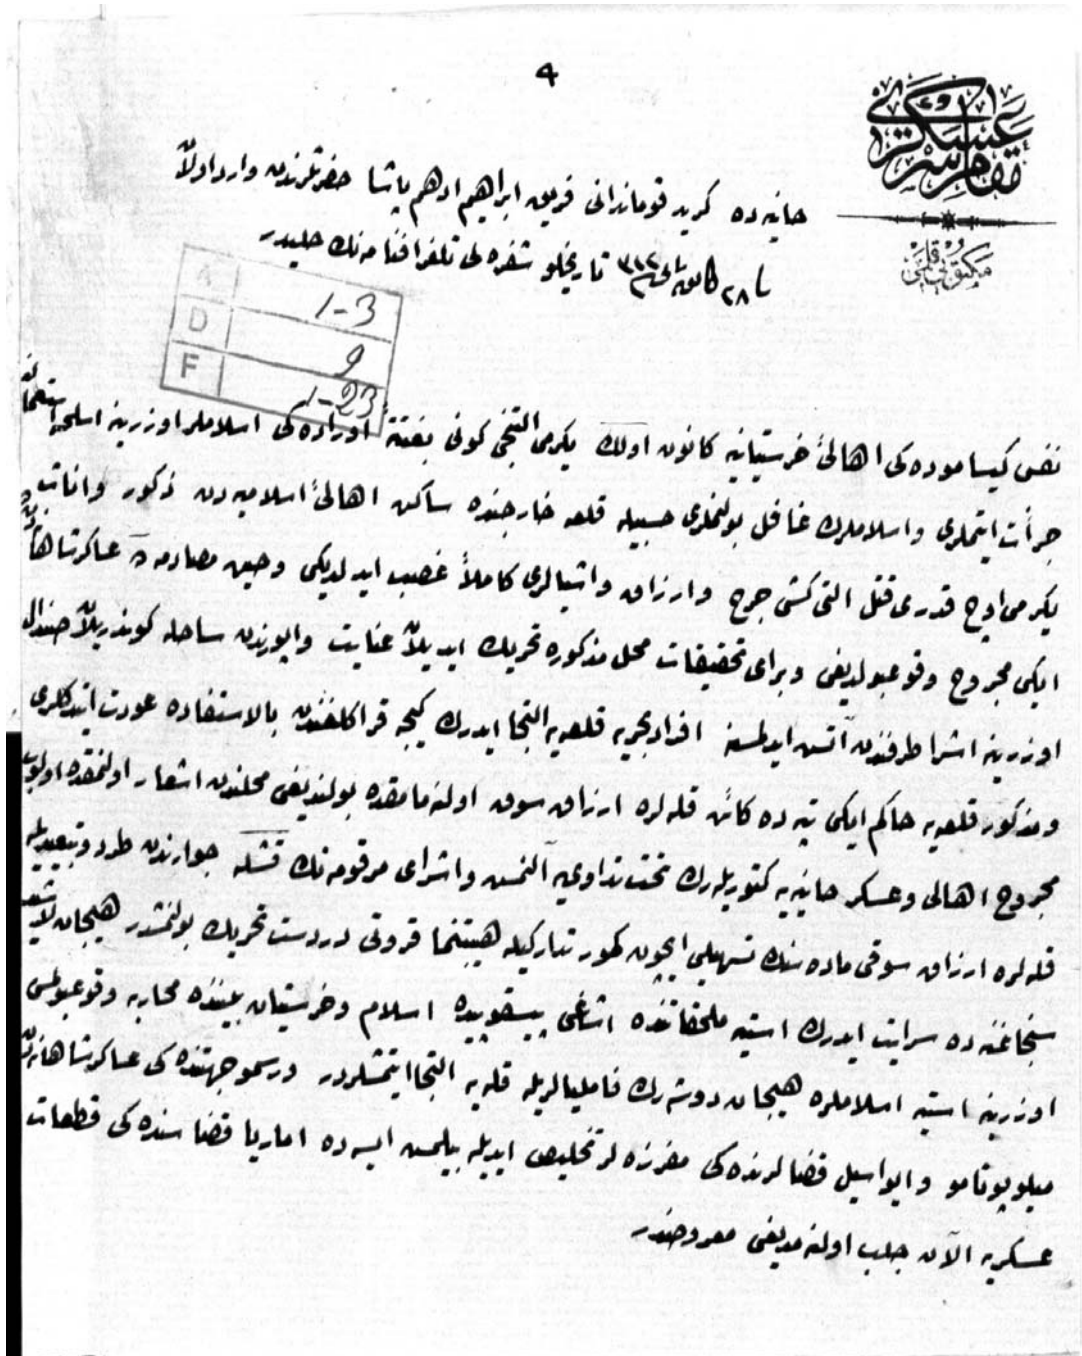 ٩
مقام سر عسكری
مكتوبی قلمی
حانیه ده كرید قوماندانی فریق ابراهیم ادهم پاشا حضرتلرندن وارد اولان
٢٨ كانون ثانی ٣١٢ تاریخلو شفره لی تلغرافنامه نك حلیدر
A 1-3
D 9
F 1-23
نفس كیساموده كی اهالئ خرستیانیه كانون اولك یكرمی التنجی كونی بغتةً اوراده كی اسلاملر اوزرینه اسلحه استعمالنه
جرأت ایتملری و اسلاملرك غافل بولنملری حسبیله قلعه خارجنده ساكن اهالئ اسلامیه دن ذكور و اناث
یكرمی اوچ قدری قتل التی كشی جرح و ارزاق و اشیالری كاملاً غصب ایدلدیكی و حین مصادمه ده عساكر شاهانه دن
ایكی مجروح وقوعبولدیغی و برای تحقیقات محل مذكوره تحریك ایدیلان عنایت واپورندن ساحله كوندریلان صندال
اوزرینه اشرا طرفندن آتش ایدلمسنه افراد بحریه قلعه یه التجا ایدرك كیجه قراكلغندن بالاستفاده عودت ایتدكلری
و مذكور قلعه یه حاكم ایكی تپه ده كائن قله لره ارزاق سوق اولنه مامقده بولندیغی محلندن اشعار اولنمقده اولوب
مجروح اهالی و عسكر حانیه یه كتوریله رك تحت تداوی یه آلنمش و اشرای مرقومه نك قشله جوارندن طرد و تبعیدیله
قله لره ارزاق سوقی ماده سنك تسهیلی ایچون كمور تداركیله هیبتنما قروتی دردست تحریك بولنمشدر هیجان لاشید
سنجاغنه ده سرایت ایدرك استیه ملحقاتنده اشاغی پیسقوپیده اسلام و خرستیان بیننده محاربه وقوعبولمسی
اوزرینه استیه اسلاملره هیجان دوشه رك فامیلیالریله قله یه التجا ایتمشلردر و رسمو جهتنده كی عساكر شاهانه دن
میلوپوتامو و ایواسیل قضالرنده كی مفرزه لر تخلیص ایدیله بیلمش ایسه ده اماریا قضاسنده كی قطعات
عسكریه الآن جلب اولنه مدیغی معروضدر